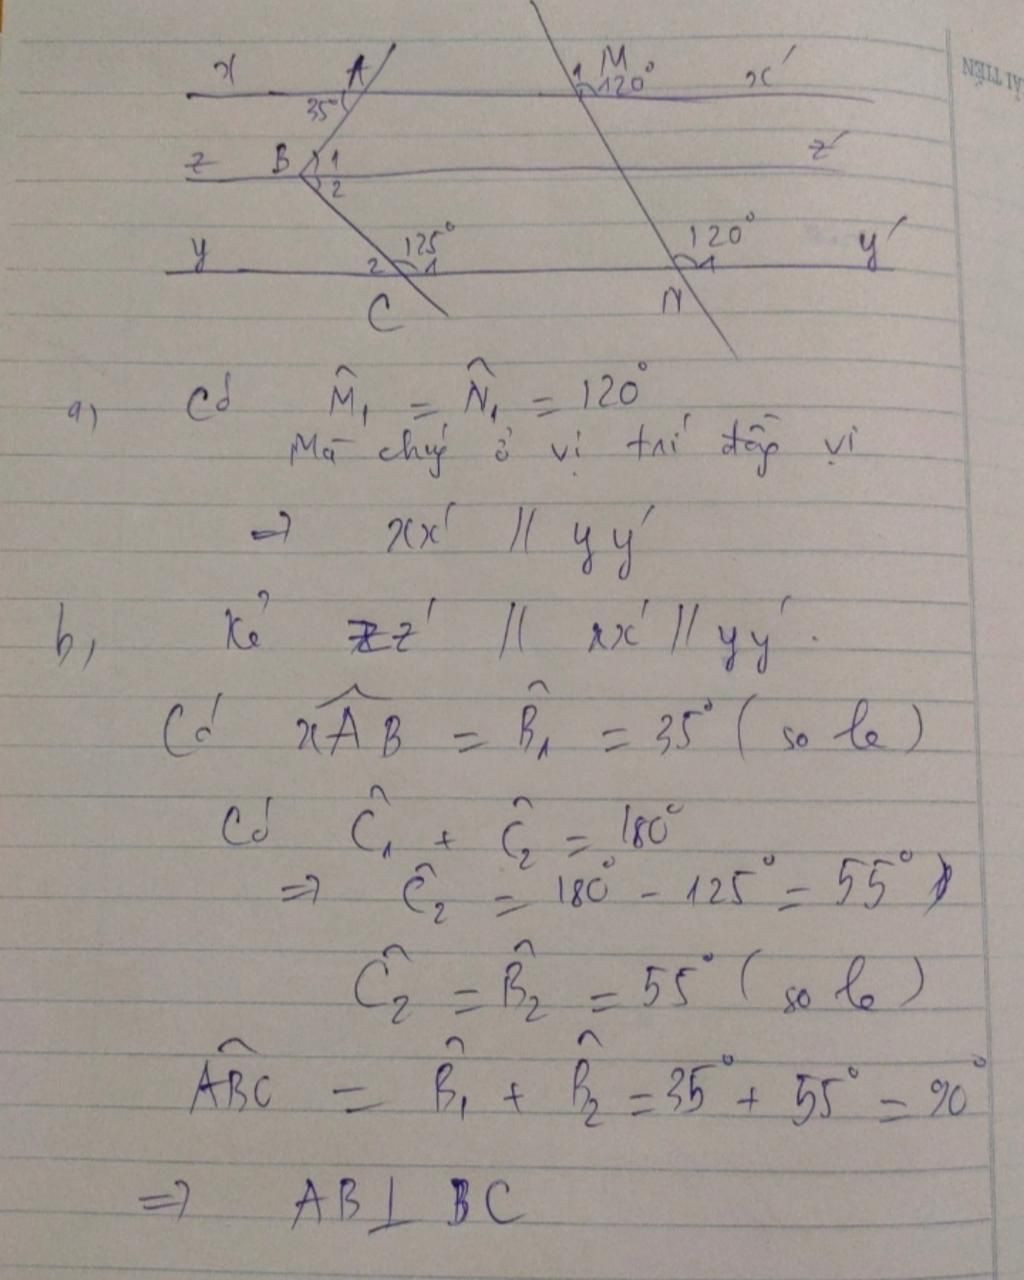 x A M x'
35° 1 120°
z B 1 z'
2
y 125° 120° y'
2 1 1
C N
a, Có M̂₁ = N̂₁ = 120°
Mà chúng ở vị trí đồng vị
=> xx' // yy'
b, Kẻ zz' // xx' // yy'.
Có xÂB = B̂₁ = 35° (so le)
Có Ĉ₁ + Ĉ₂ = 180°
=> Ĉ₂ = 180° - 125° = 55°
Ĉ₂ = B̂₂ = 55° (so le)
AB̂C = B̂₁ + B̂₂ = 35° + 55° = 90°
=> AB ⊥ BC